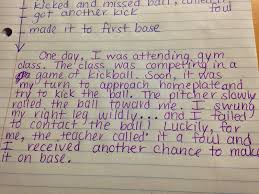 kicked and missed ball, called it
foul
I got another kick
I made it to first base
One day, I was attending gym
class. The class was competing in a
game of kickball. Soon, it was
my turn to approach homeplate and
try to kick the ball. The pitcher slowly
rolled the ball toward me. I swung
my right leg wildly... and I failed
to contact the ball! Luckily, for
me, the teacher called it a foul and
I received another chance to make
it on base.